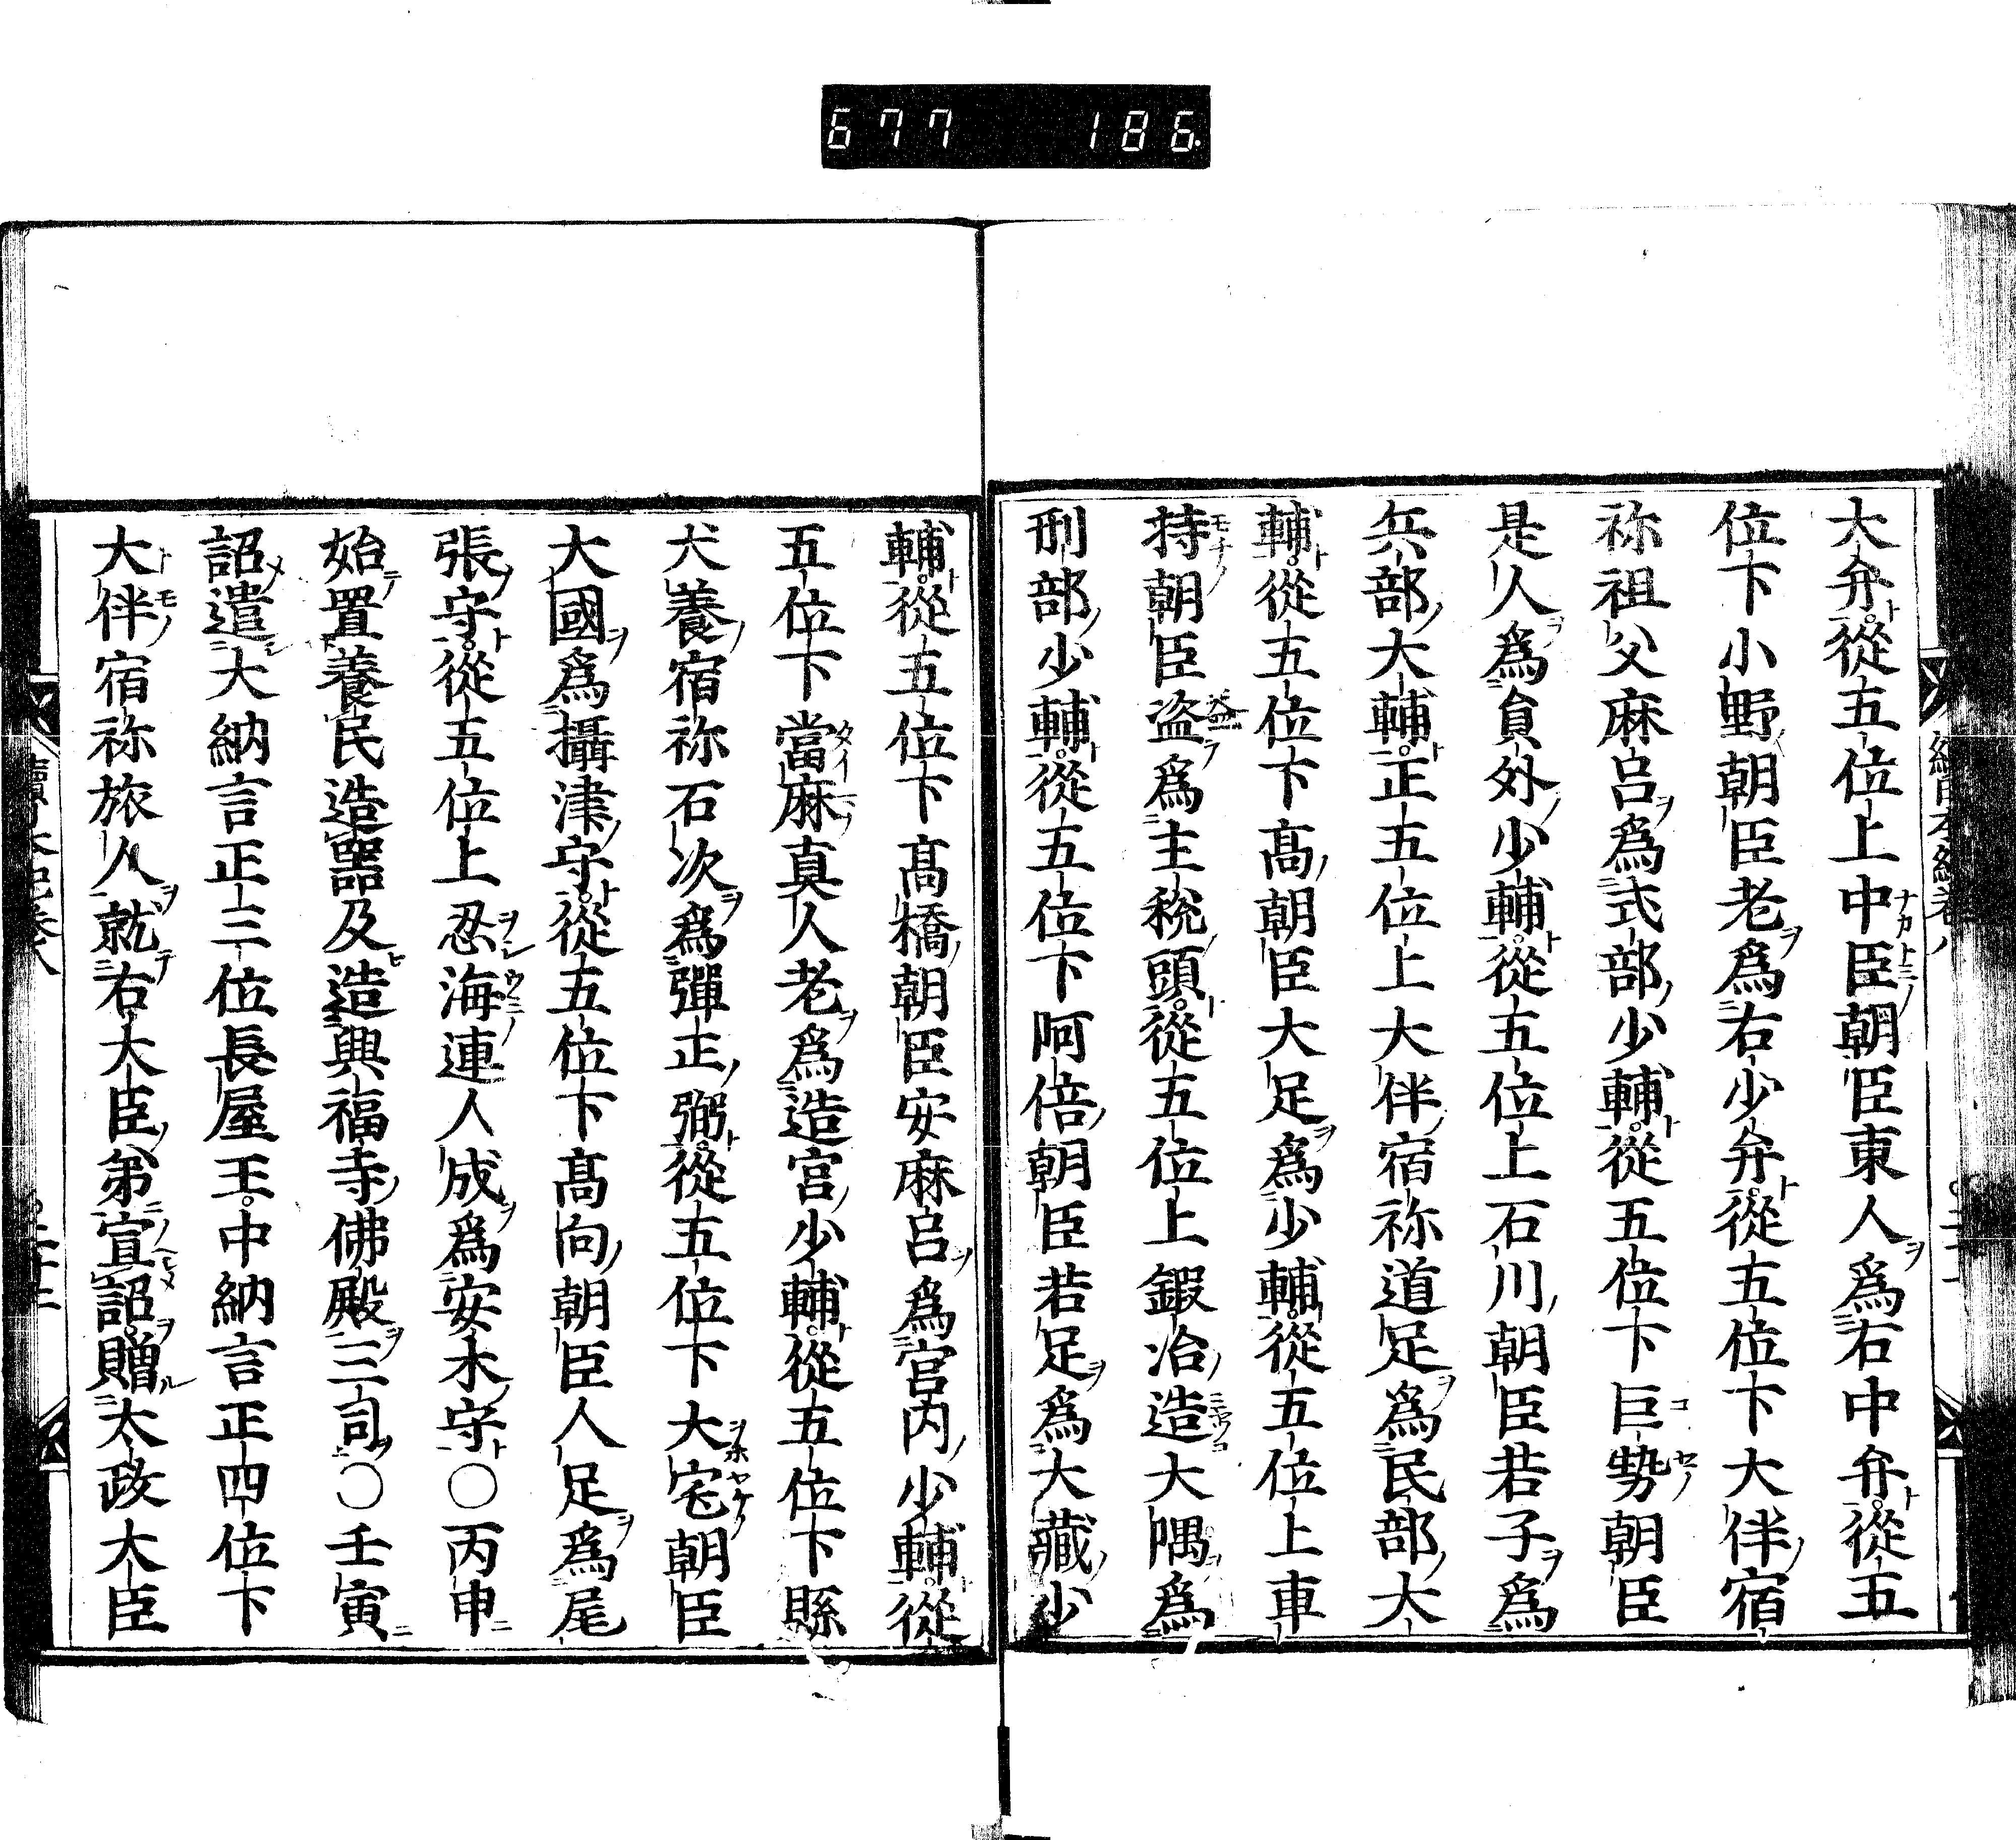 677 186
大弁從五位上中臣朝臣東人爲右中弁從五
位下小野朝臣老爲右少弁從五位下大伴宿
祢祖父麻呂爲式部少輔從五位下巨勢朝臣
是人爲員外少輔從五位上石川朝臣若子爲
兵部大輔正五位上大伴宿祢道足爲民部大
輔從五位下髙朝臣大足爲少輔從五位上車
持朝臣盗爲主稅頭從五位上鍜冶造大隅爲
刑部少輔從五位下阿倍朝臣若足爲大藏少
輔從五位下髙橋朝臣安麻呂爲宮內少輔從
五位下當麻真人老爲造宮少輔從五位下縣
犬養宿祢石次爲彈正弼從五位下大宅朝臣
大國爲攝津守從五位下髙向朝臣人足爲尾
張守從五位上忍海連人成爲安木守〇丙申
始置養民造器及造興福寺佛殿三司〇壬寅
詔遣大納言正三位長屋王中納言正四位下
大伴宿祢旅人就右大臣第宣詔贈太政大臣